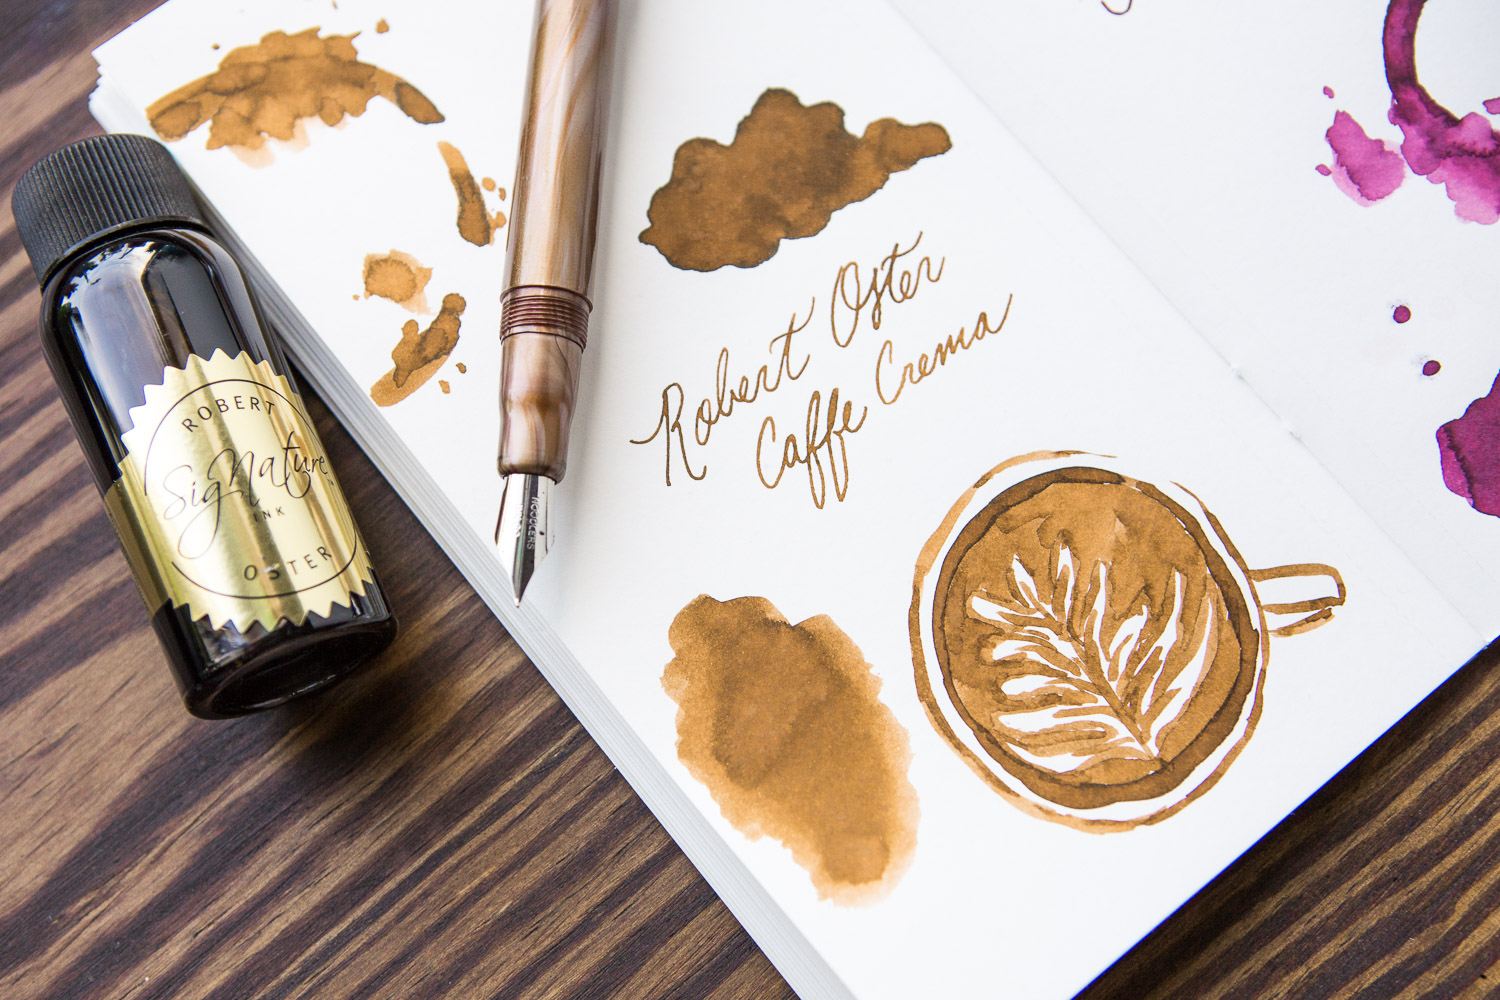 ROBERT
Signature
INK
OSTER
NOODLERS
Robert Oster
Caffe Crema